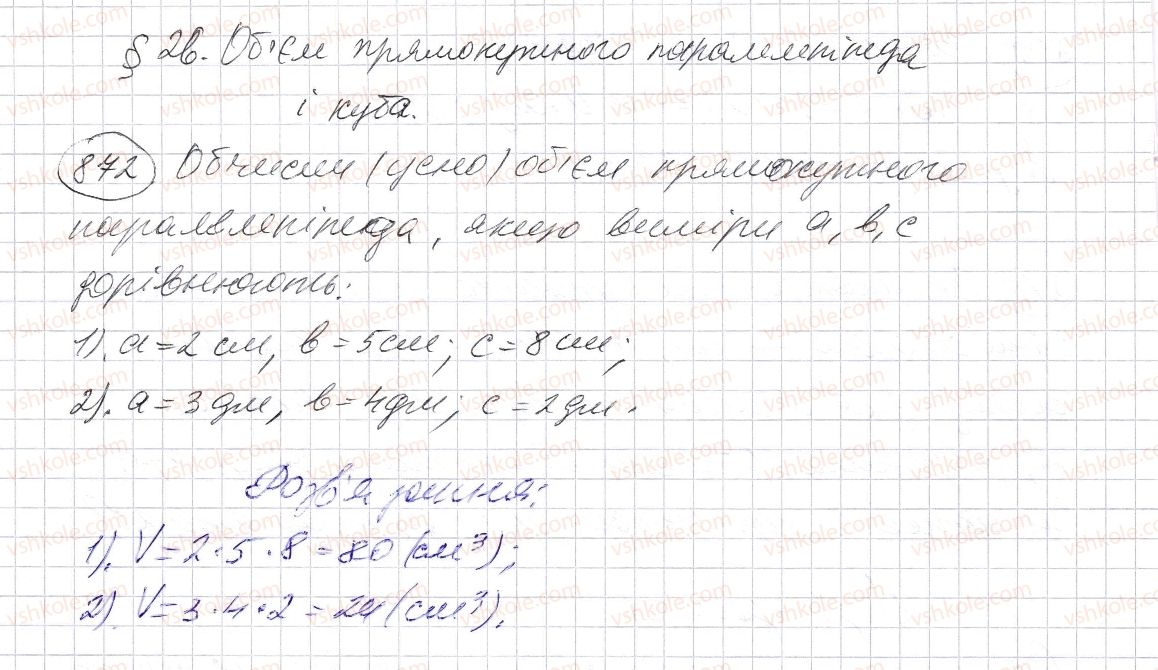 § 26. Об'єм прямокутного паралелепіпеда
і куба.
872 Обчисли (усно) об'єм прямокутного
паралелепіпеда, якщо виміри a, b, c
дорівнюють:
1). a = 2 см, b = 5 см; c = 8 см;
2). a = 3 дм, b = 4 дм; c = 2 дм.
Розв'язання:
1). V = 2 · 5 · 8 = 80 (см³);
2). V = 3 · 4 · 2 = 24 (см³).